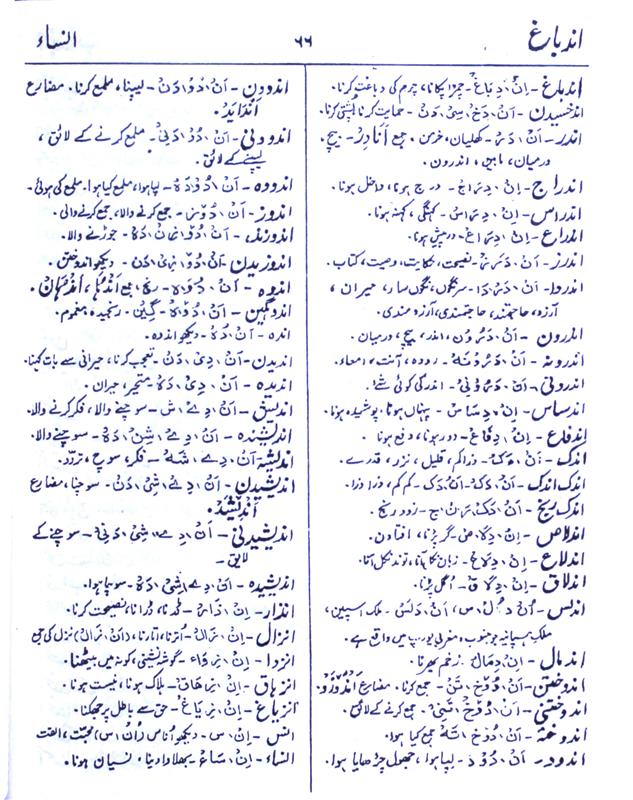 اندباغ
۶۶
النساء
اندباغ - اِنْ، دِ بَاغ - چمڑا پکانا، چرم کی دباغت کرنا.
اندخسیدن - اَنْ، دَخْ، سِیْ، دَنْ - حمایت کرنا، پشتی کرنا.
اندر - اَنْ، دَرْ - کھلیان، خرمن. جمع اَنَادِرْ - بیچ،
درمیان، مابین، اندرون.
اندراج - اِنْ، دِ رَاجْ - درج ہونا، داخل ہونا.
اندراس - اِنْ، دِ رَاسْ - کہنگی، کہنہ ہونا.
اندراغ - اِنْ، دِ رَاغ -
اندرز - اَنْ، دَرْزْ - نصیحت، حکایت، وصیت، کتاب.
اندروا - اَنْ، دَرْ، وَا - سرنگوں، نگوں سار، حیران،
آرزو، حاجتمند، حاجتمندی، آرزو مندی.
اندرون - اَنْ، دَرُوْنْ، اندر، بیچ، درمیان.
اندرونہ - اَنْ، دَرُوْنَہْ - رودہ، آنت، امعاء.
اندرونی - اَنْ، دَرُوْنِیْ - اندر کی کوئی شے.
اندساس - اِنْ، دِ سَاسْ - پنہاں ہونا، پوشیدہ ہونا.
اندفاع - اِنْ، دِ فَاعْ - دور ہونا، دفع ہونا.
اندک - اَنْ، دَکْ - ذرا، کم، قلیل، نزر، قدرے.
اندک اندک - اَنْ، دَکْ، اَنْ، دَکْ - کم کم، ذرا ذرا.
اندک رنج - اَنْ، دَکْ، رَنْج - زود رنج.
اندلاص - اِنْ، دِ لَاصْ - گر پڑنا، افتادن.
اندلاع - اِنْ، دِ لَاعْ - زبان نکل آنا، توند نکل آنا.
اندلاق - اِنْ، دِ لَاقْ - نکل پڑنا.
اندلس - اَنْ، دُ لُسْ، اَنْ، دَ لَسْ - ملک اسپین،
ملک ہسپانیہ جو جنوب، مغربی یورپ میں واقع ہے.
اندمال - اِنْ، دِ مَالْ - زخم بھرنا.
اندوختن - اَنْ، دُوْخْ، تَنْ - جمع کرنا. مضارع اَنْدُوْزَدْ.
اندوختنی - اَنْ، دُوْخْ، تَنِیْ - جمع کرنے کے لائق.
اندوختہ - اَنْ، دُوْخْ، تَہْ - جمع کیا ہوا.
اندود - اَنْ، دُوْدْ - لیپا ہوا، جھول چڑھایا ہوا.
اندودن - اَنْ، دُوْ، دَنْ - لیپنا، ملمع کرنا. مضارع
اَنْدَایَدْ.
اندودنی - اَنْ، دُوْ، دَنِیْ - ملمع کرنے کے لائق،
لیپنے کے لائق.
اندودہ - اَنْ، دُوْ، دَہْ - لپا ہوا، ملمع کیا ہوا. ملمع کی ہوئی.
اندوز - اَنْ، دُوْزْ - جمع کرنے والا، جمع کرنے والی.
اندوزندہ - اَنْ، دُوْ، زَنْ، دَہْ - جوڑنے والا.
اندوزیدن - اَنْ، دُوْ، زِیْ، دَنْ - دیکھو اندوختن.
اندوہ - اَنْ، دُوْہْ - رنج، جمع اَنْدُہَا، اَنْدُہَانْ.
اندوہگین - اَنْ، دُوْہْ، گِیْنْ - رنجیدہ، مغموم.
اندہ - اَنْ، دُہْ - دیکھو اندوہ.
اندیدن - اَنْ، دِیْ، دَنْ - تعجب کرنا، حیرانی سے بات کہنا.
اندیدہ - اَنْ، دِیْ، دَہْ - متحیر، حیران.
اندیش - اَنْ، دِے، ش - سوچنے والا، فکر کرنے والا.
اندیشندہ - اَنْ، دِے، شِنْ، دَہْ - سوچنے والا.
اندیشہ - اَنْ، دِے، شَہْ - فکر، سوچ، تردّد.
اندیشیدن - اَنْ، دِے، شِیْ، دَنْ - سوچنا، مضارع
اَنْدِیْشَدْ.
اندیشیدنی - اَنْ، دِے، شِیْ، دَنِیْ - سوچنے کے
لائق.
اندیشیدہ - اَنْ، دِے، شِیْ، دَہْ - سوچا ہوا.
انذار - اِنْ، ذَارْ - ڈرانا، نصیحت کرنا.
انزال - اِنْ، زَالْ - اُترنا، اُتارنا، (اَنْ، زَالْ) نزل کی جمع
انزوا - اِنْ، زِ وَاء - گوشہ نشینی، کونہ میں بیٹھنا.
انزہاق - اِنْ، زِ ہَاقْ - ہلاک ہونا، نیست ہونا.
انزیاغ - اِنْ، زِ یَاغْ - حق سے باطل پر جھکنا.
انس - اِنْ، س - دیکھو اُناس (اُنْ، س) محبّت، الفت
انساء - اِنْ، سَاءْ - بھلا دینا، نسیان ہونا.